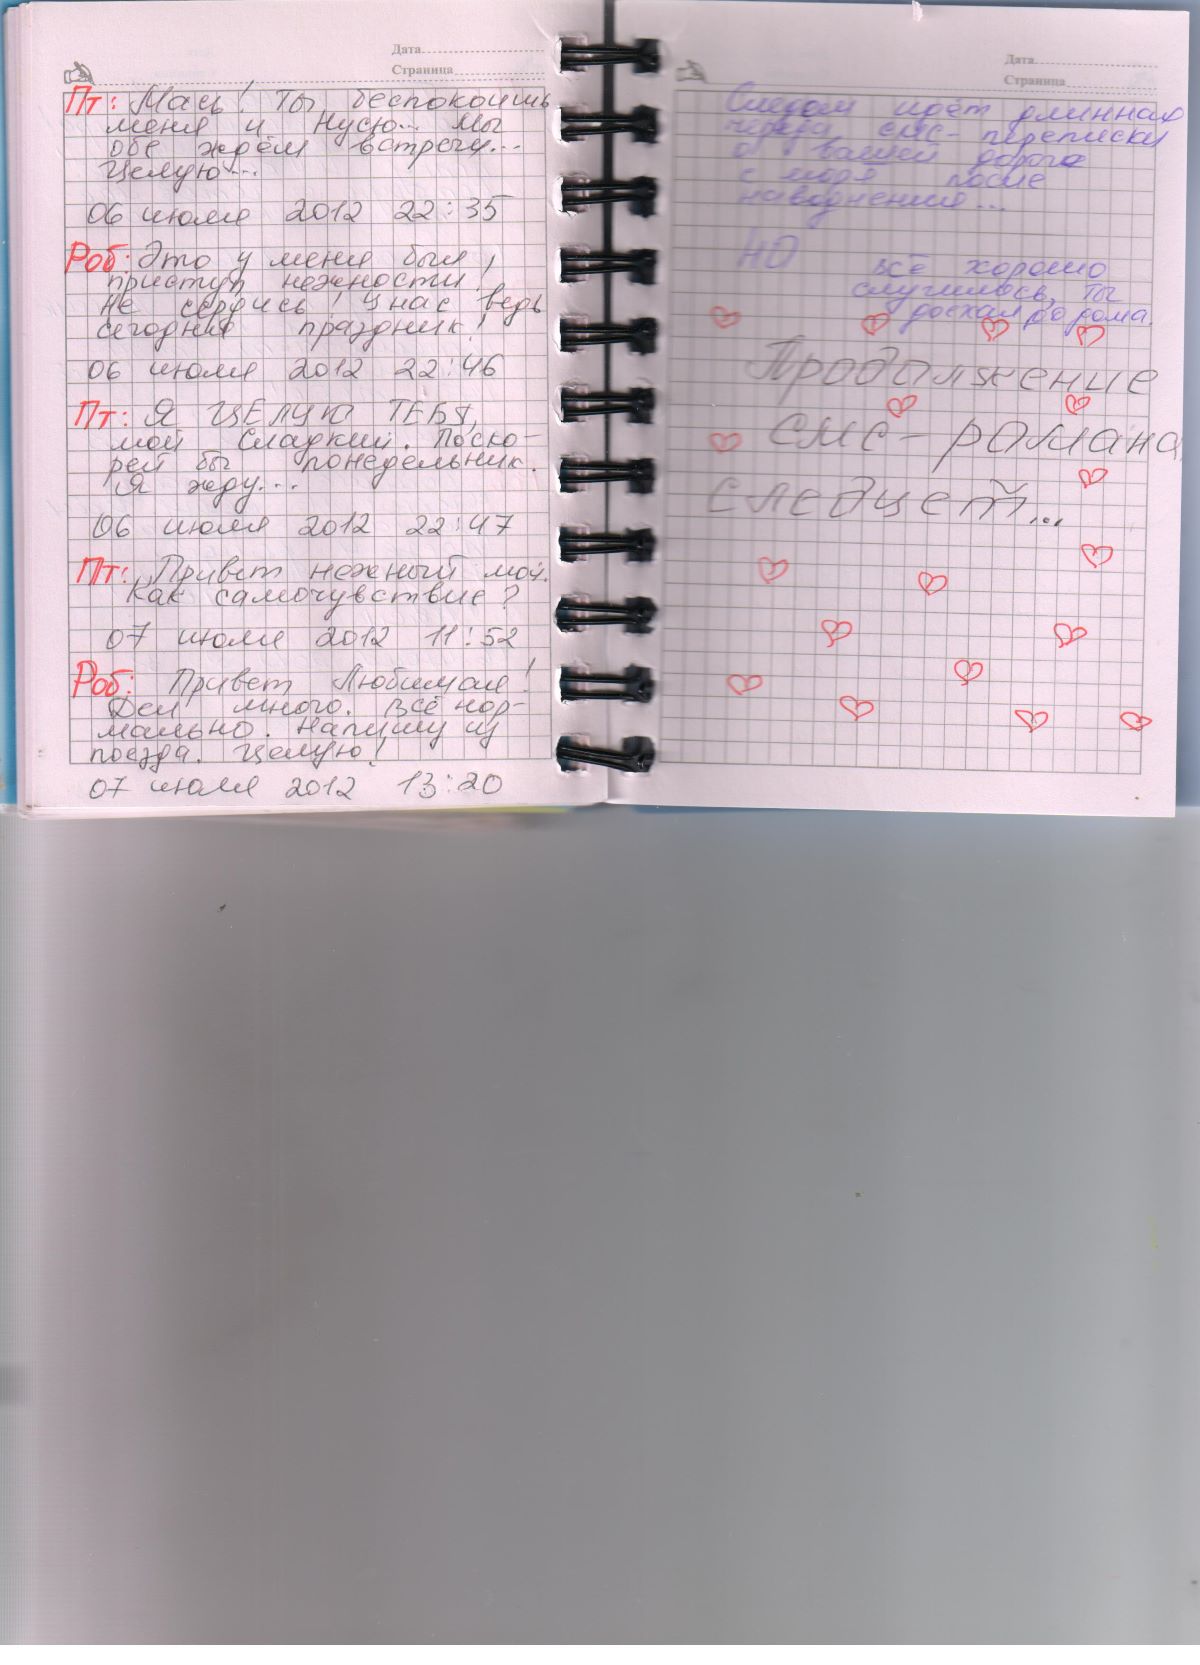 Дата
Страница
Пт: Мась! Ты беспокоишь
меня и Нусю... Мы
обе ждём встречу...
Целую...
06 июля 2012 22:35
Роб: Это у меня был
приступ нежности!
Не сердись! У нас ведь
сегодня праздник!
06 июля 2012 22:46
Пт: Я ЦЕЛУЮ ТЕБЯ,
мой сладкий. Поско-
рей бы понедельник.
Я жду...
06 июля 2012 22:47
Пт: Привет нежный мой.
Как самочувствие?
07 июля 2012 11:52
Роб: Привет Любимая!
Дел много. Всё нор-
мально. Напишу из
поезда. Целую!
07 июля 2012 13:20
Дата
Страница
Следом идёт длинная
череда смс-переписки
о вашей дороге
с моря после
наводнения...
НО всё хорошо
случилось, ты
доехал до дома.
Продолжение
смс-романа
следует...